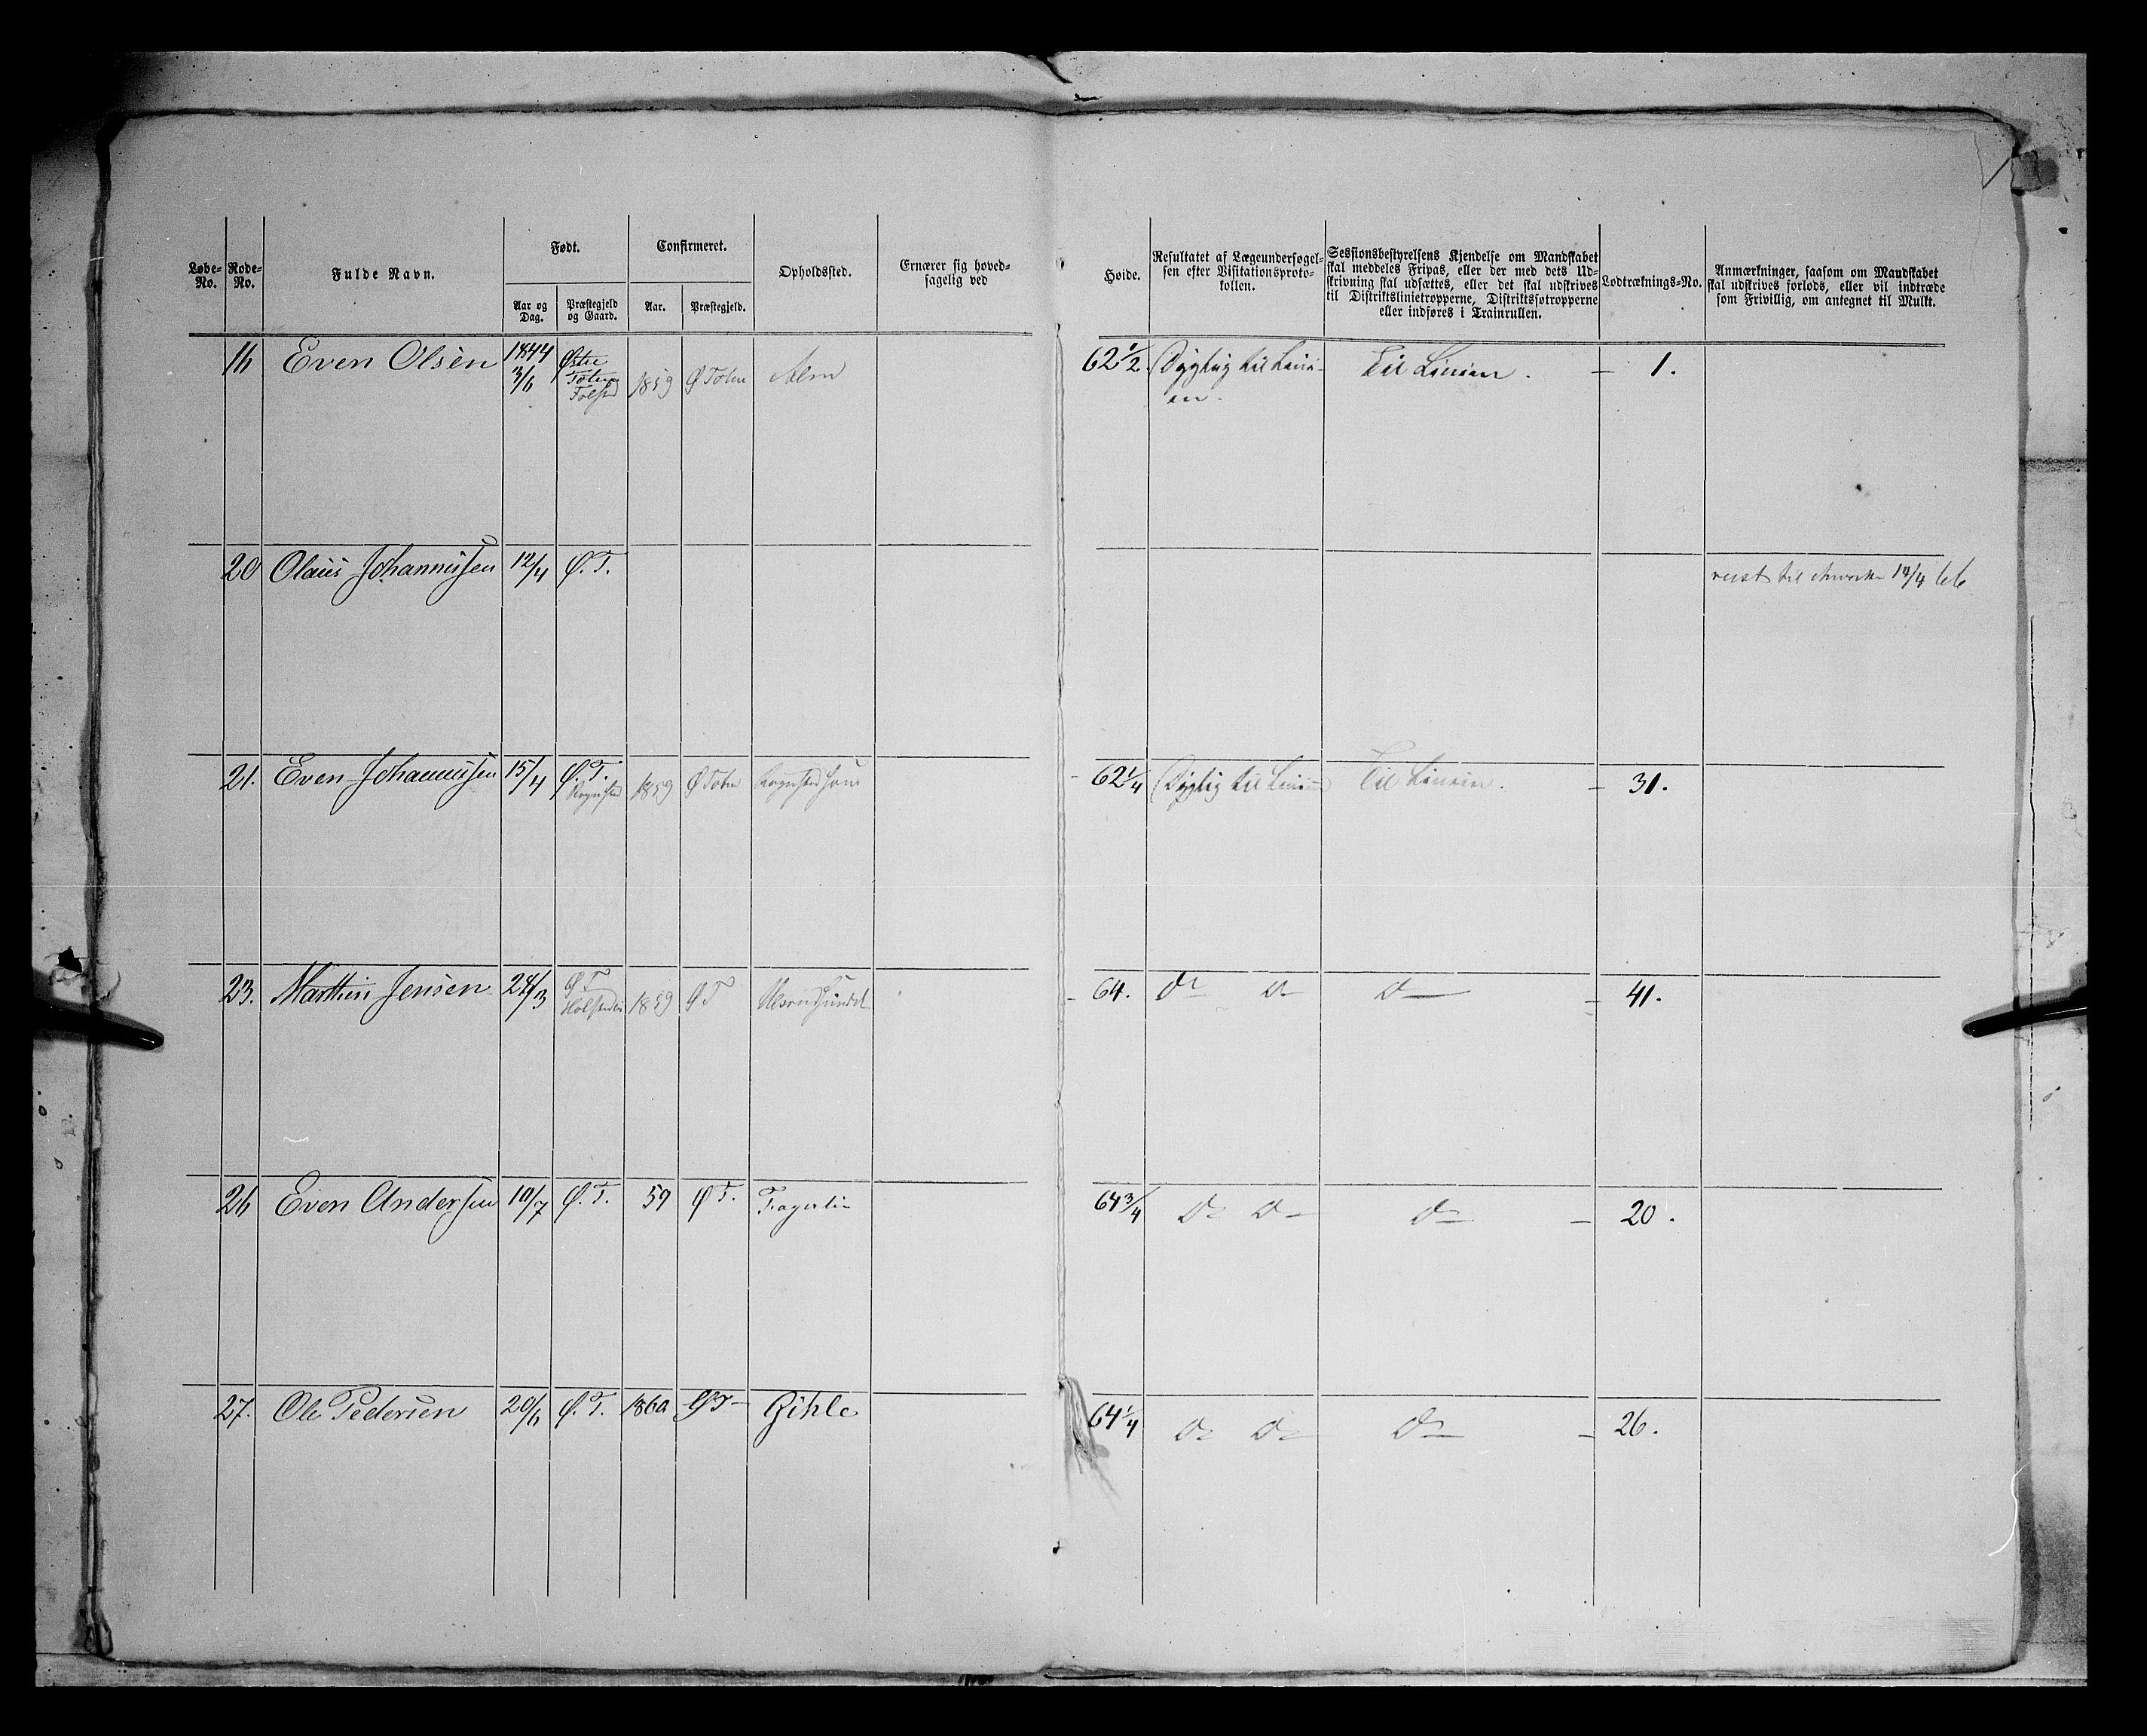 Løbe-No.
Rode-No.
Fulde Navn.
Født.
Aar og Dag.
Præstegjeld og Gaard.
Confirmeret.
Aar.
Præstegjeld.
Opholdssted.
Ernærer sig hoved-
sagelig ved
Høide.
Resultatet af Lægeundersøgel-
sen efter Visitationsproto-
kollen.
Sessionsbestyrelsens Kjendelse om Mandskabet
skal meddeles Fripas, eller der med dets Ud-
skrivning skal udsættes, eller det skal udskrives
til Distriktslinietropperne, Distriktsfotropperne
eller indføres i Trainrullen.
Lodtræknings-No.
Anmærkninger, saasom om Mandskabet
skal udskrives forlods, eller vil indtræde
som Frivillig, om antegnet til Mulkt.
16 Even Olsen 1844 3/6 Østre Toten 1859 Ø Toten Alm 62 1/2 Dygtig til Lini-
en. Til Linien. 1.
20 Olaus Johannissen 12/4 Ø. T. reist til 14/4 66
21. Even Johannissen 15/4 Ø. T. Rognsted 1859 Ø Toten 62 1/4 Dygtig til Linien Til Linien. 31.
23. Marthin Jensen 24/3 Ø T 1859 Ø T 64. Do Do Do 41.
26 Even Anderssen 10/7 Ø. T. 59 Ø T. 64 3/4 Do Do Do 20.
27. Ole Pedersen 20/6 Ø. T. 1860 Ø T Gihle 64 1/4 Do Do Do 26.